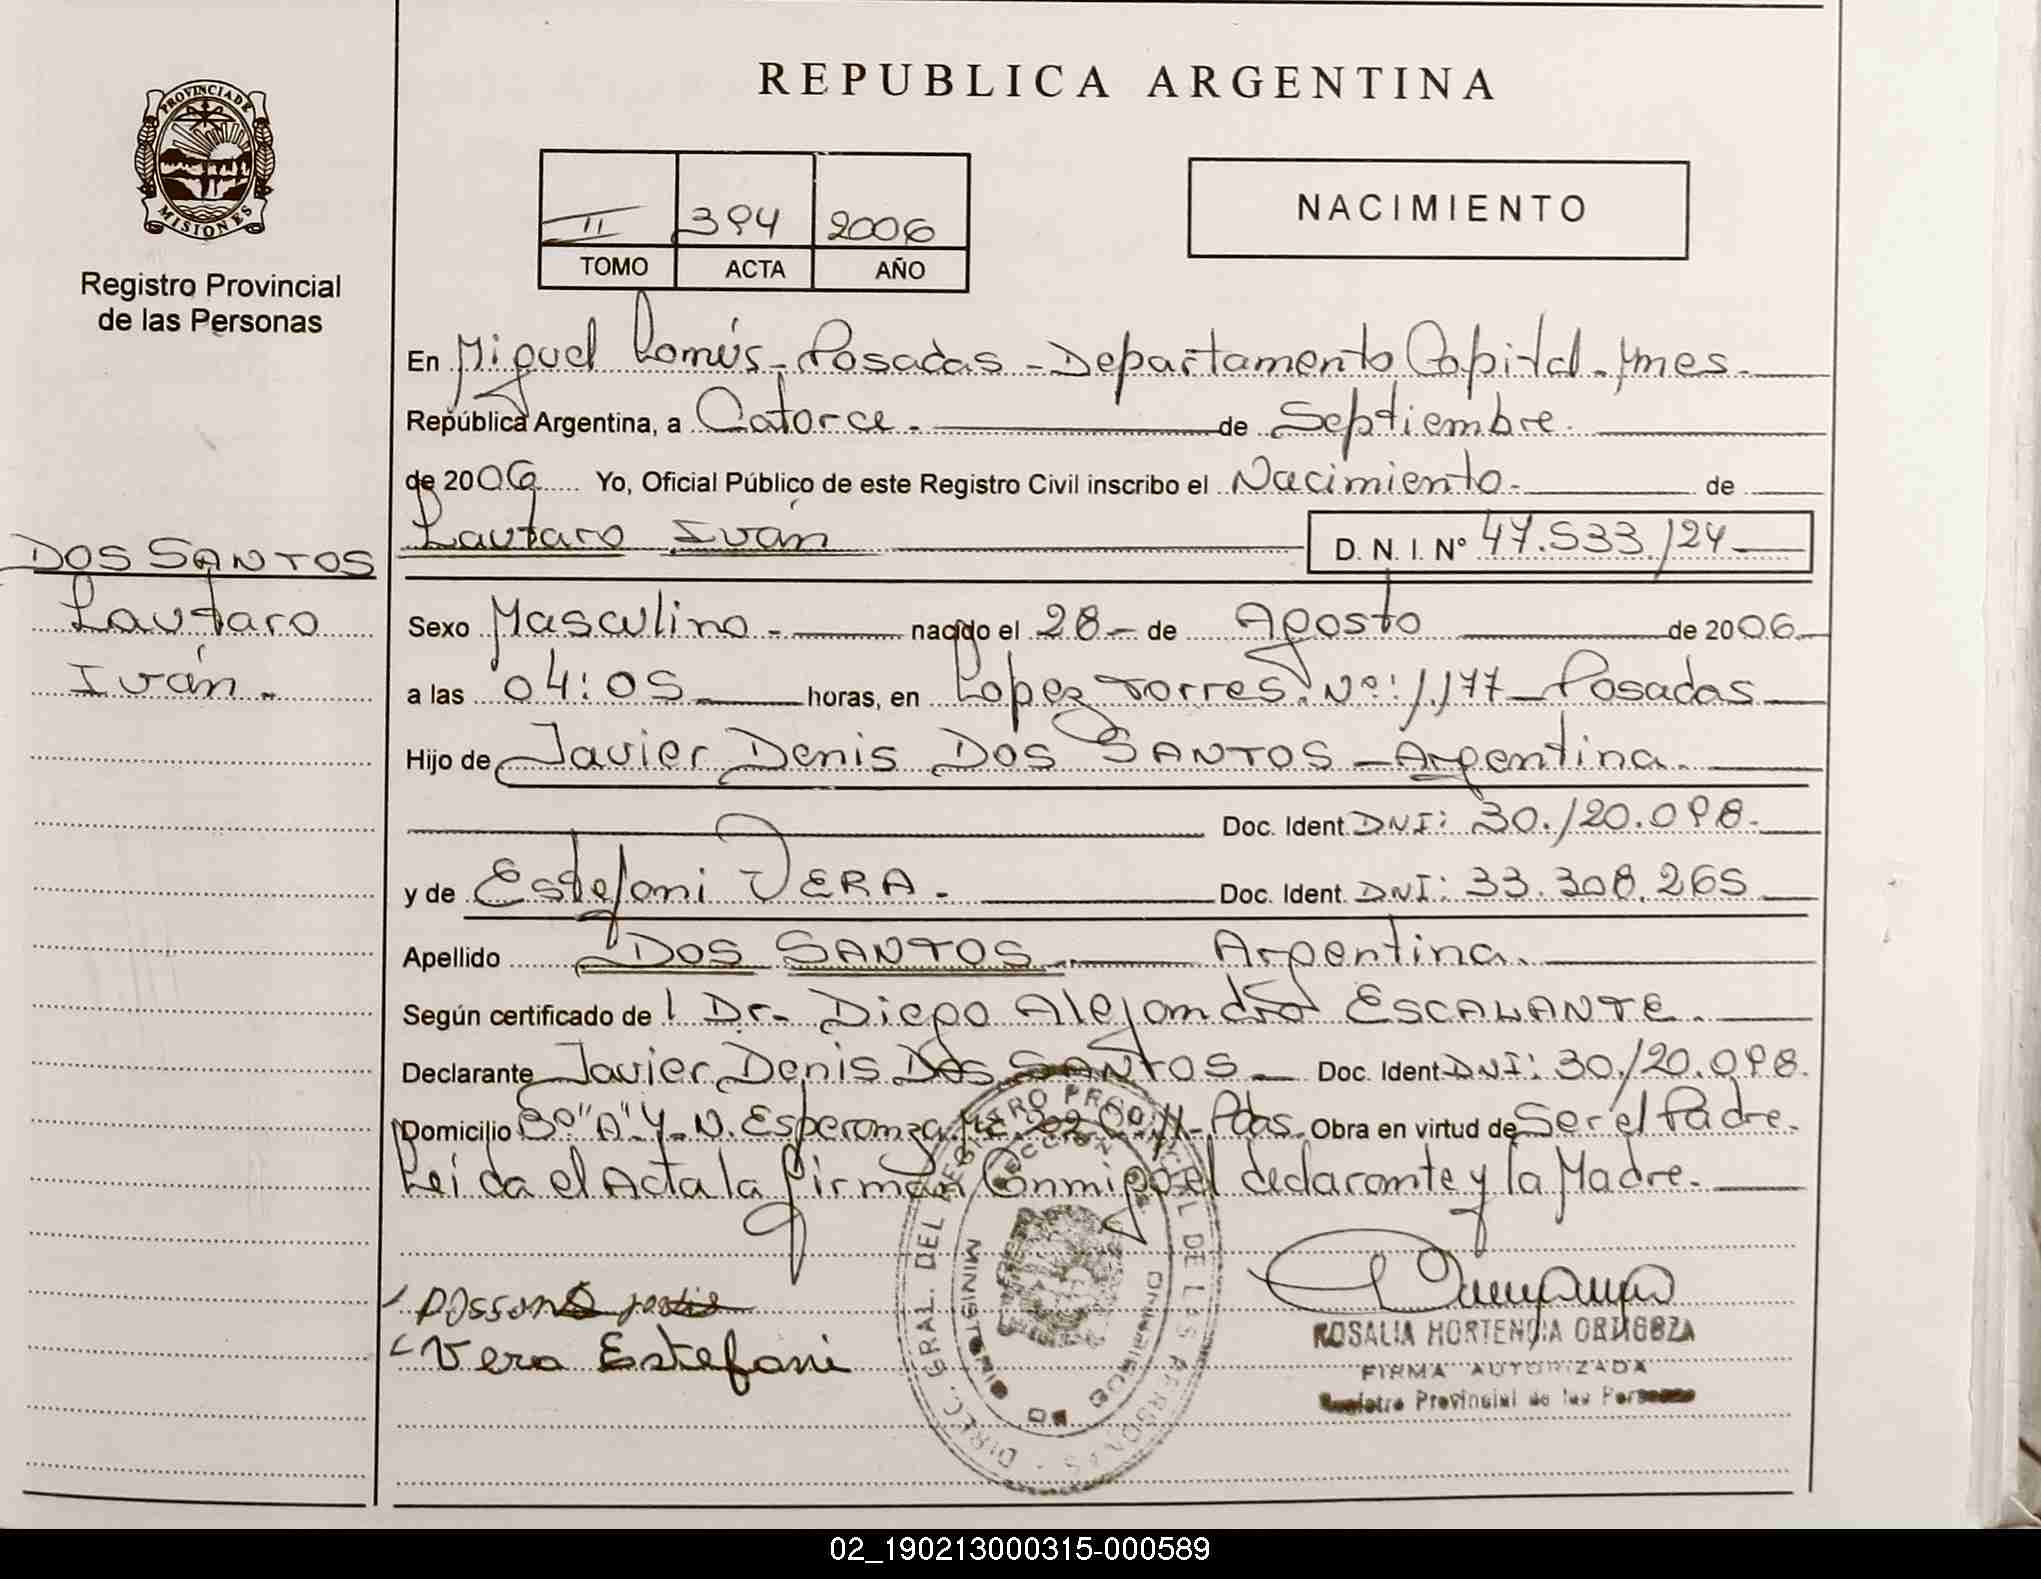 PROVINCIA DE
MISIONES
Registro Provincial
de las Personas
DOS SANTOS
Lautaro
Iván.
REPUBLICA ARGENTINA
II 394 2006
TOMO ACTA AÑO
NACIMIENTO
En Miguel Lanús - Posadas - Departamento Capital - Mnes.
República Argentina, a Catorce. de Septiembre.
de 2006 Yo, Oficial Público de este Registro Civil inscribo el Nacimiento. de
Lautaro Iván D. N. I. Nº 47.533.124
Sexo Masculino - nacido el 28 - de Agosto de 2006.
a las 04:05 horas, en Lopez Torres. Nº: 1.177 - Posadas
Hijo de Javier Denis DOS SANTOS - Argentina.
Doc. Ident. DNI: 30.120.098.
y de Estefani VERA. Doc. Ident. DNI: 33.308.265
Apellido DOS SANTOS Argentina.
Según certificado de l Dr. Diego Alejandro ESCALANTE.
Declarante Javier Denis DOS SANTOS Doc. Ident DNI: 30.120.098.
Domicilio Bº "A" 4 - N. Esperanza Pdas. Obra en virtud de Ser el Padre.
Leida el Acta la firman Conmigo el declarante y la Madre.
Vera Estefani
DIREC. GRAL. DEL REGISTRO PROVINCIAL DE LAS PERSONAS
MINISTERIO DE GOBIERNO
ROSALIA HORTENCIA ORTIGOZA
FIRMA AUTORIZADA
Registro Provincial de las Personas
02_190213000315-000589